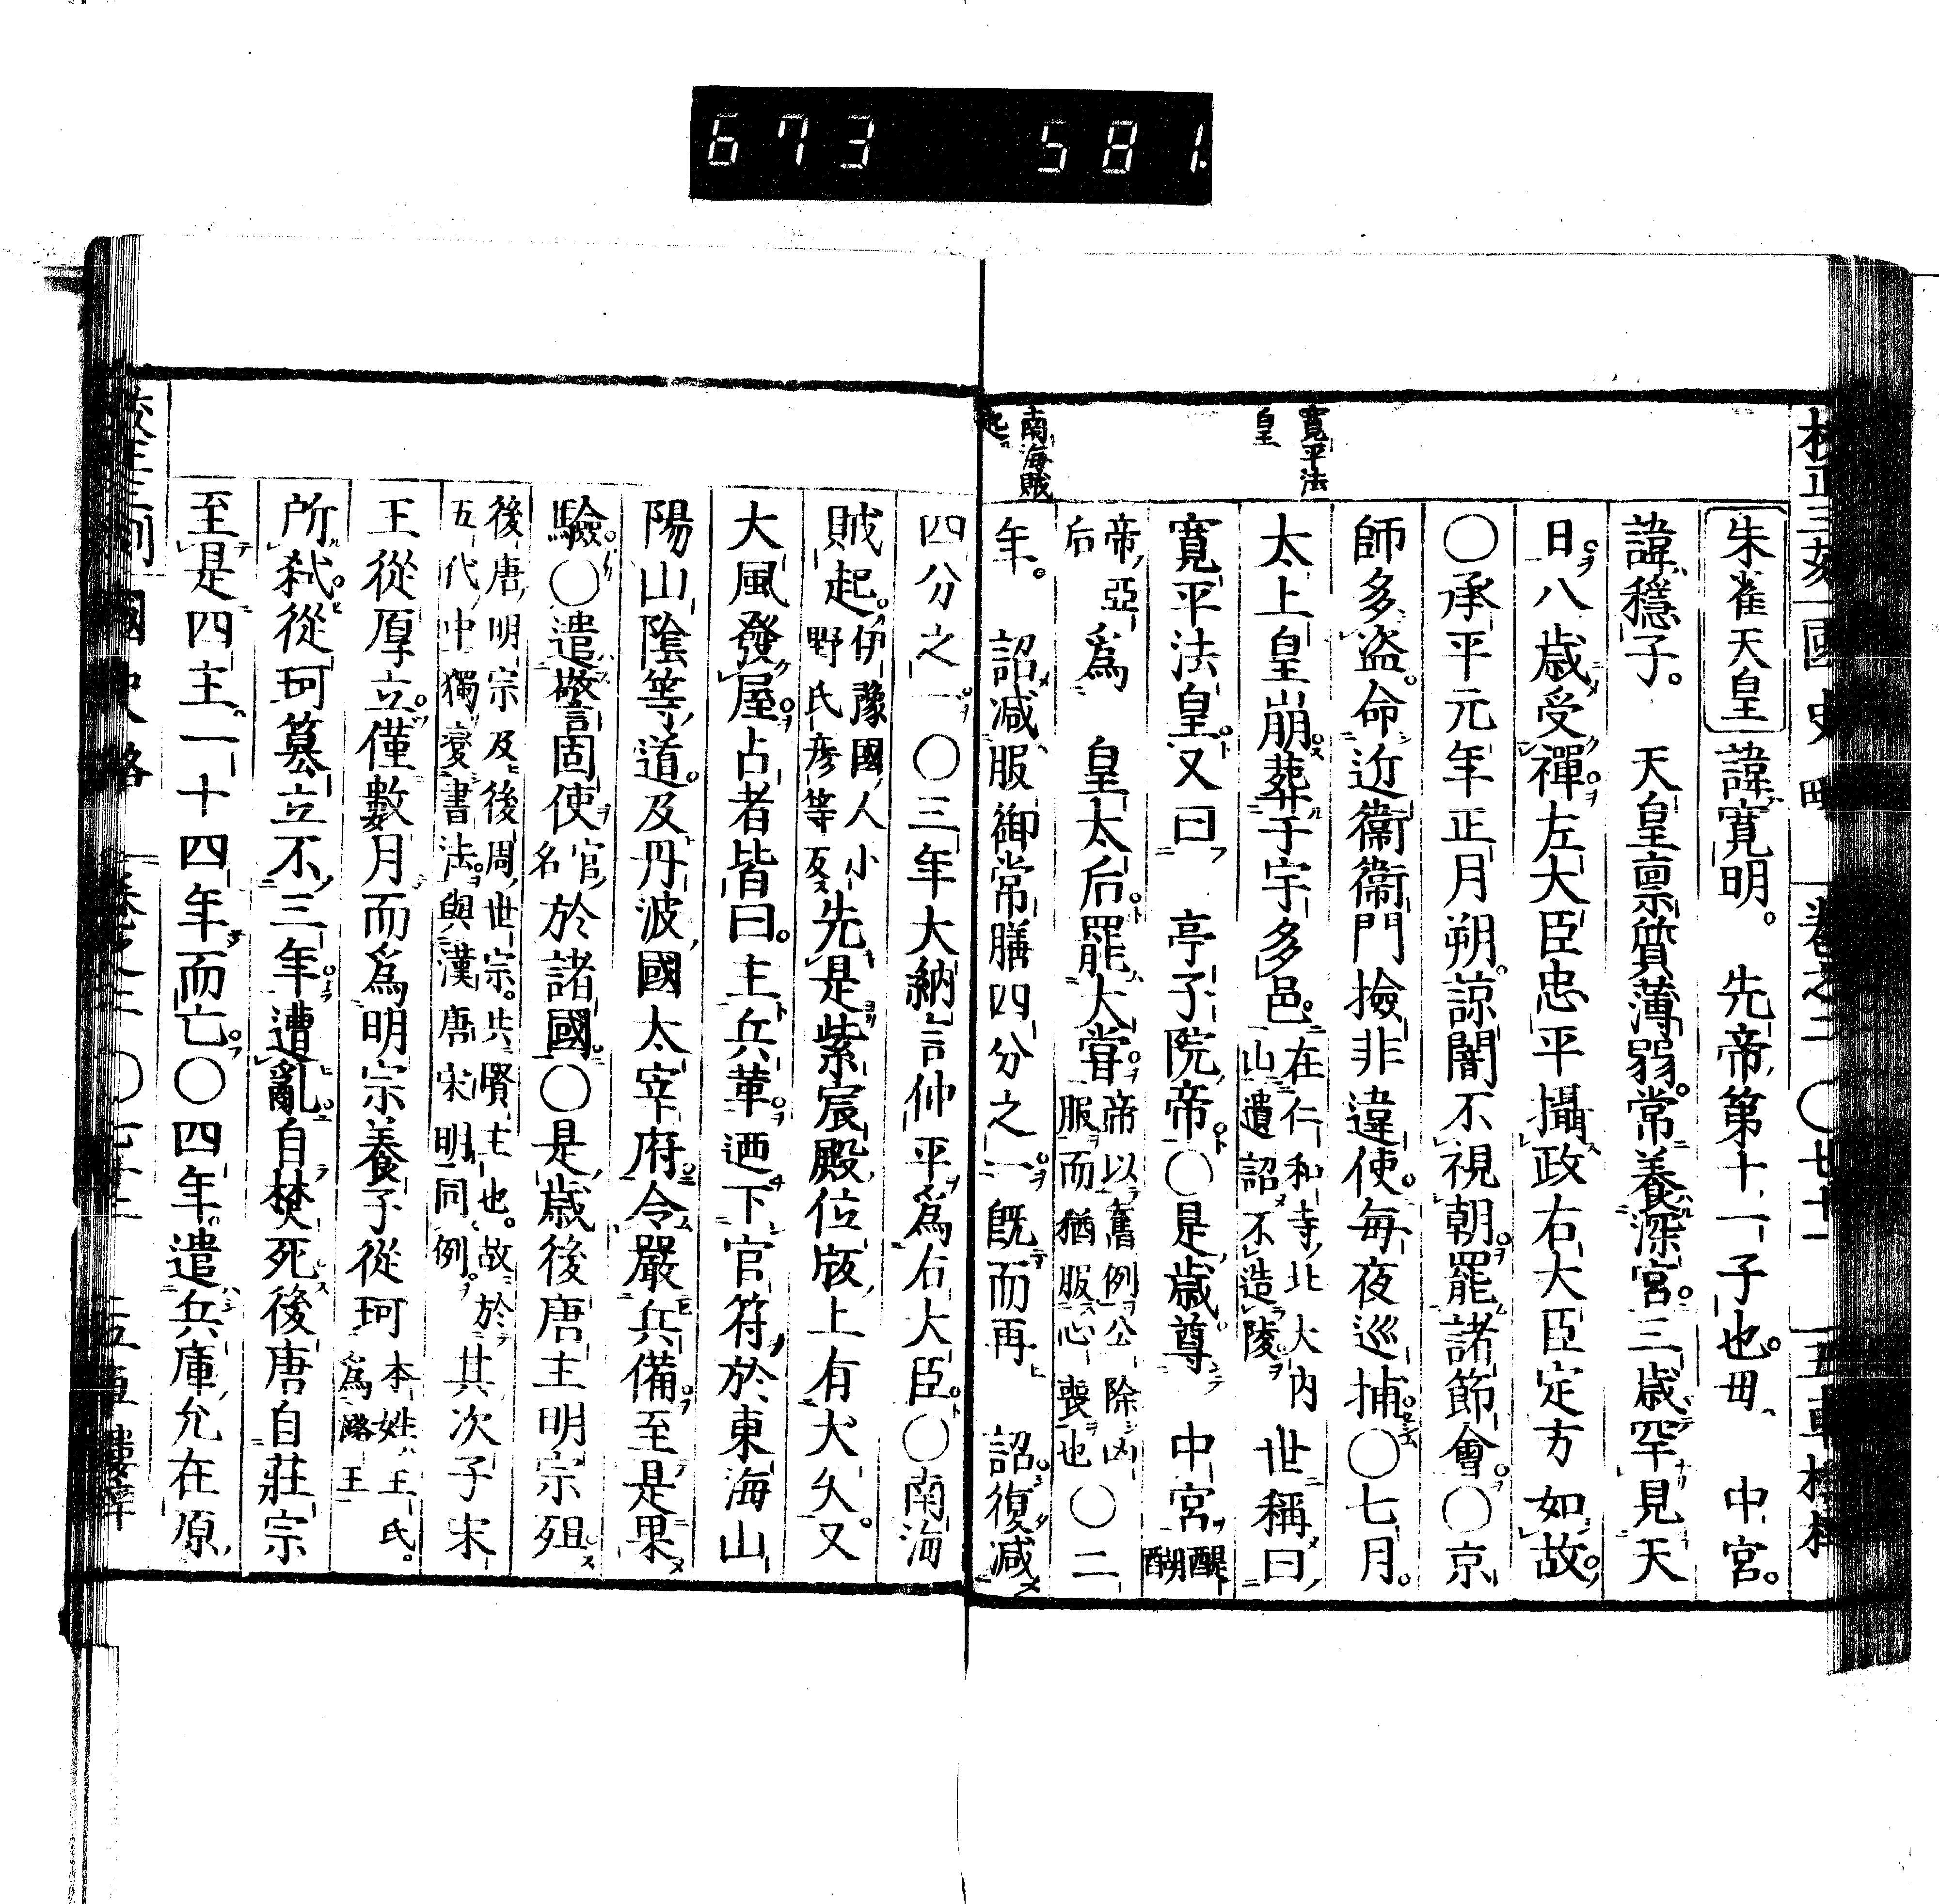 673 581
校正三刻國史略 卷之二 〇七十一 五車樓梓
寬平法皇
南海賊起
朱雀天皇 諱寛明。 先帝第十一子也。毋 中宮。
諱穩子。 天皇禀質薄弱。常養深宮。三歳罕見天
日。八歳受禪。左大臣忠平攝政。右大臣定方如故。
〇承平元年正月朔。諒闇不視朝。罷諸節會。〇京
師多盗。命近衞衞門撿非違使。毎夜巡捕。〇七月。
太上皇崩。葬于宇多邑。在仁和寺北大内山遺詔不造陵 世稱曰
寛平法皇。又曰 亭子院帝。〇是歳尊 中宮。醍醐
帝亞后 爲 皇太后。罷大甞。帝以舊例公除凶服而猶服心喪也 〇二
年。 詔減服御常膳四分之一。既而再 詔復減
四分之一。〇三年大納言仲平爲右大臣。〇南海
賊起。伊豫國人小野氏彦等反 先是紫宸殿位版上有犬矢。又
大風發屋。占者皆曰。主兵革。迺下官符於東海山
陽山陰等道。及丹波國太宰府。令嚴兵備。至是果
驗。〇遣警固使官名於諸國。〇是歳後唐主明宗殂。
後唐明宗及後周世宗。共賢主也。故於五代中獨變書法。與漢唐宋明同例。 其次子宋
王從厚立。僅數月而爲明宗養子從珂本姓王氏。爲潞王
所弑。從珂簒立。不三年。遭亂自焚死。後唐自莊宗
至是四主一十四年而亡。〇四年。遣兵庫允在原